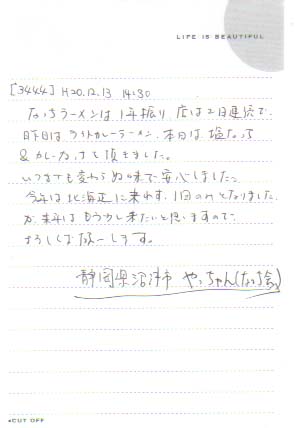 LIFE IS BEAUTIFUL
[3444] H20.12.13 14:30
なっちラーメンは1年振り、店は2日連続で、
昨日は カレーラーメン、本日は塩なっち
&カレー 頂きました。
いつまでも変わらぬ味で安心しました。
今年は北海道に来れず、1回のみとなりました
が、来年はもう少し来たいと思いますので、
よろしくお願いします。
静岡県沼津市 やっちゃん(なっち
CUT OFF